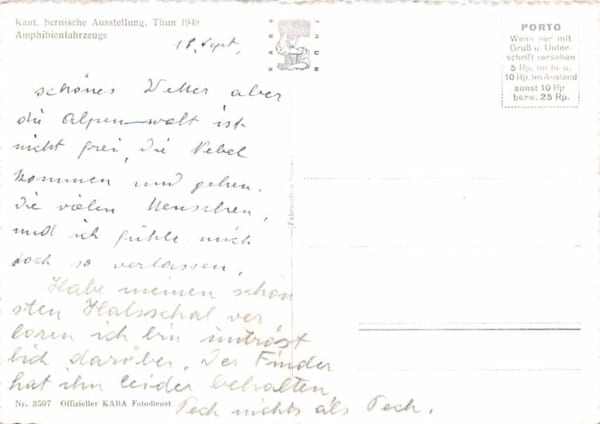 Kant. bernische Ausstellung, Thun 1949
Amphibienfahrzeuge
18. Sept.
KABA
THUN
PORTO
Wenn nur mit
Gruß u. Unter-
schrift versehen
5 Rp. im In- u.
10 Rp. im Ausland
sonst 10 Rp
bezw. 25 Rp.
schönes Wetter aber
die Alpenwelt ist
nicht frei, die Nebel
kommen und gehen.
die vielen Menschen,
und ich fühle mich
doch so verlassen.
Habe meinen schön
sten Halsschal ver
loren ich bin untröst
lich darüber. Der Finder
hat ihn leider behalten
Pech nichts als Pech.
Nr. 3567 Offizieller KABA Fotodienst